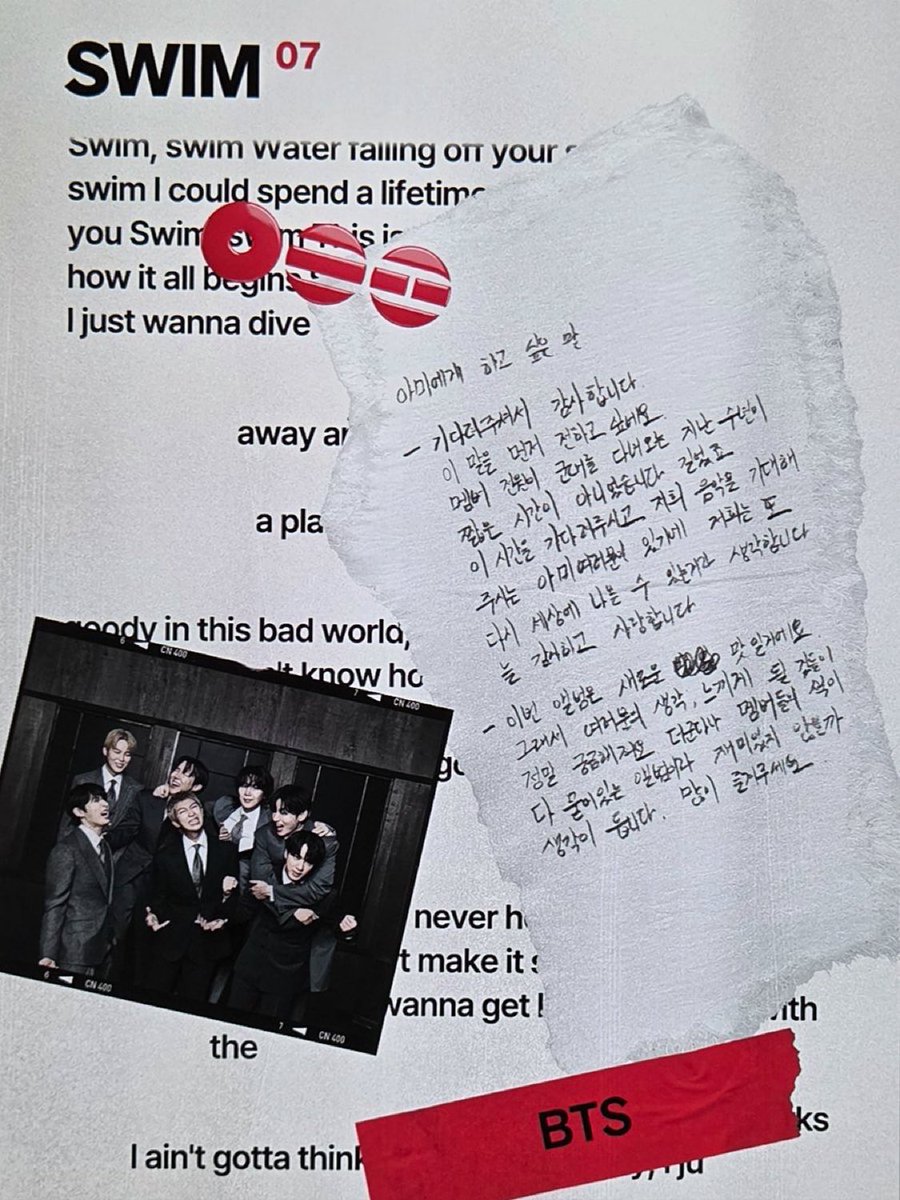 SWIM 07
Swim, swim Water falling off your
swim I could spend a lifetime
you Swim, swim This is
how it all begins
I just wanna dive
away
a pla
아미에게 하고 싶은 말
- 기다려주셔서 감사합니다.
이 말을 먼저 전하고 싶네요
멤버 전원이 군대를 다녀오는 지난 수년이
짧은 시간이 아니었습니다 길었죠
이 시간을 기다려주시고 저희 음악을 기대해
주시는 아미여러분이 있기에 저희는 또
다시 세상에 나올 수 있는거라 생각합니다
늘 감사하고 사랑합니다
- 이번 앨범은 새로운 맛일거에요
그래서 여러분의 생각, 느끼게 될 것들이
정말 궁금해져요 다군다나 멤버들의 색이
다 묻어있는 앨범이라 재미있지 않을까
생각이 듭니다. 많이 즐겨주세요
goody in this bad world,
know
CN 400
7 CN 400
never
make it
wanna get
the
6 CN 400
7 CN 400
BTS
I ain't gotta think